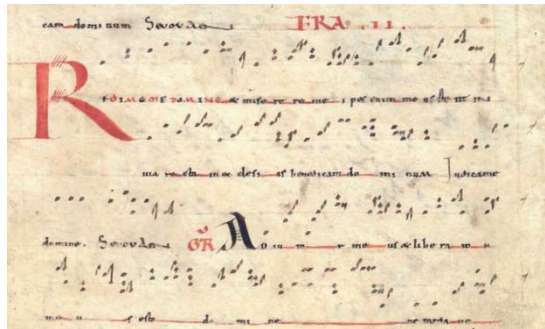 cam dominum Seuouae FRA .II.
REDIMEME DOMINE & mise re re me i pes enim me us ste tit in
uia re cta in ec clesi is benedicam do mi num Iudicame
domine. Seuouae GR AD iu to r me us & libera to
me u s esto do mi ne ne